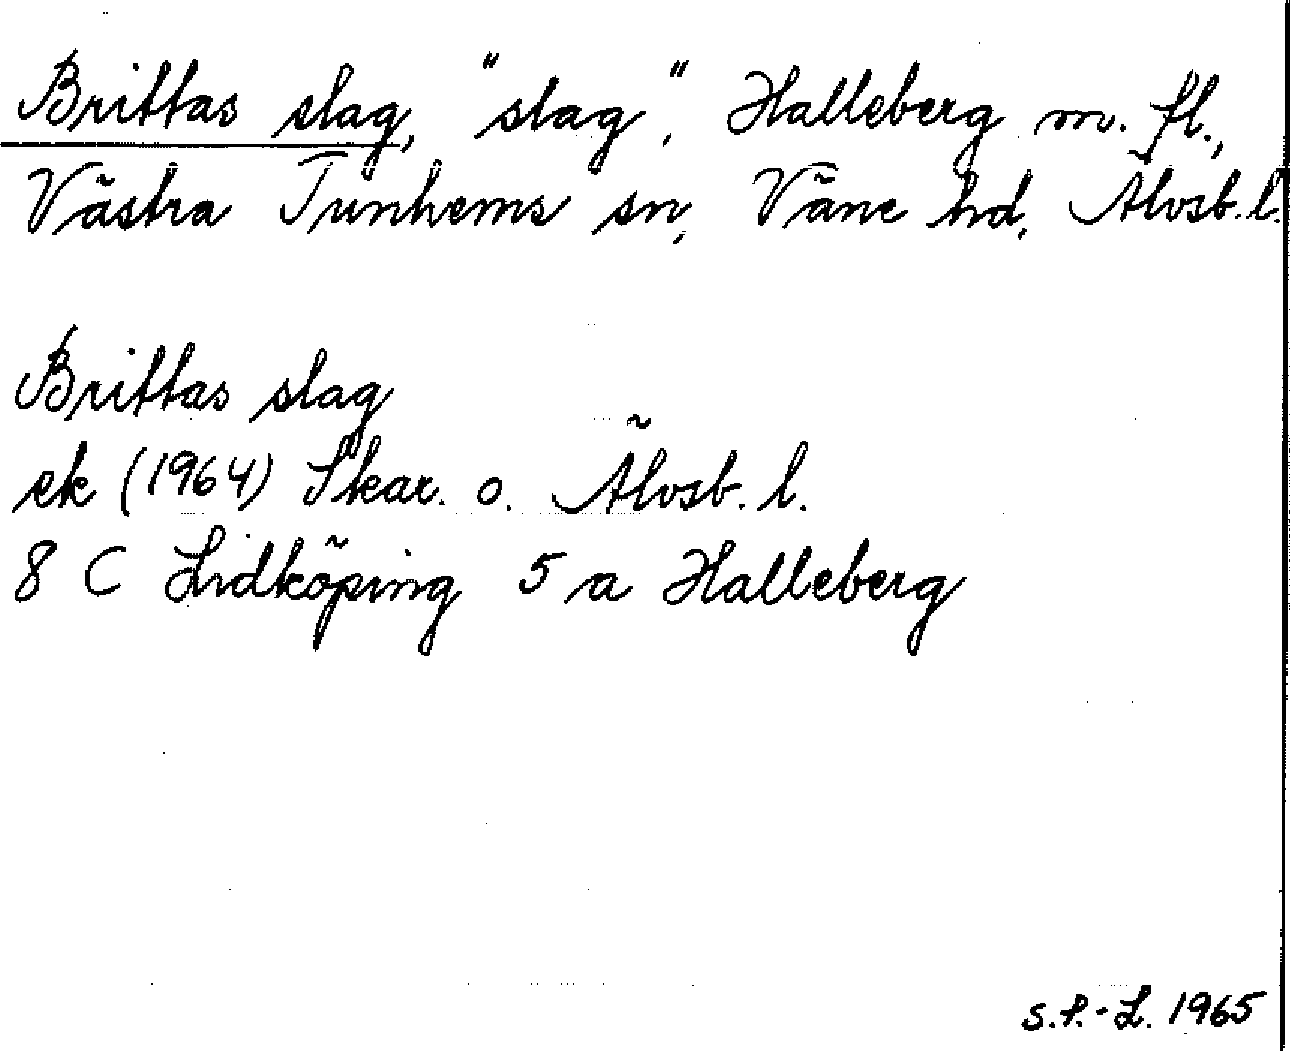 Brittas slag, "slag", Halleberg m. fl.,
Västra Tunhems sn, Väne hd, Älvsb. l.
Brittas slag
ek (1964) Skar. o. Älvsb. l.
8 C Lidköping 5 a Halleberg
S.P.-L. 1965